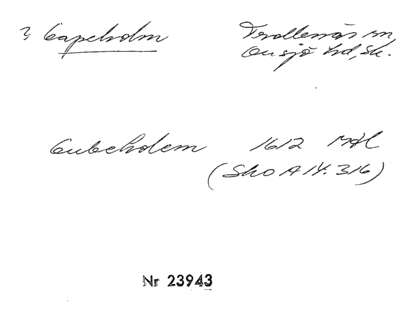 ? Capeholm Trollenäs sn,
Onsjö hd, Sk.
Cubeholem 1612 Mål
(Sko A IV. 316)
Nr 23943